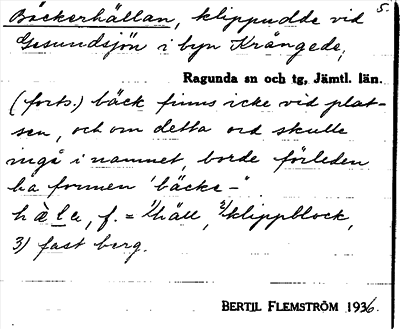 Bäckerhällan, klippudde vid 5.
Gesundsjön i byn Krångede,
Ragunda sn och tg, Jämtl. län.
(forts.) bäck finns icke vid plat-
sen, och om detta ord skulle
ingå i namnet, borde förleden
ha formen 'bäcke-'
hàla, f. = 1/häll, 2/klippblock,
3) fast berg.
BERTIL FLEMSTRÖM 1936.